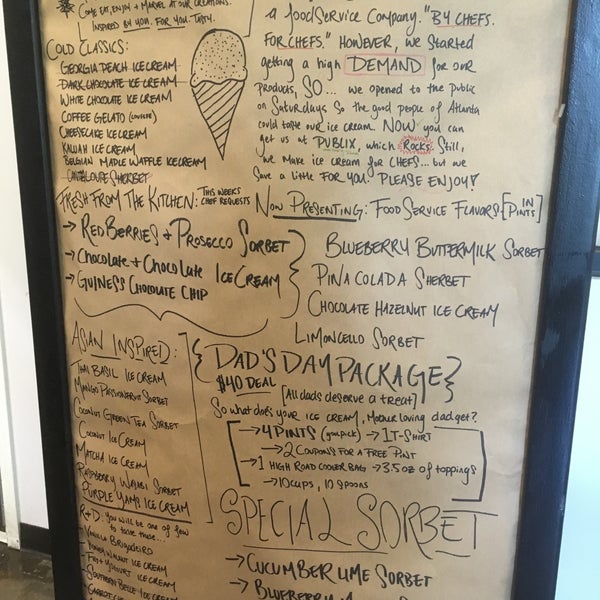 COME EAT, ENJOY + MARVEL AT OUR CREATIONS.
INSPIRED BY YOU. FOR YOU. TASTY.
COLD CLASSICS:
GEORGIA PEACH ICE CREAM
DARK CHOCOLATE ICE CREAM
WHITE CHOCOLATE ICE CREAM
COFFEE GELATO
CHEESECAKE ICE CREAM
KALUAH ICE CREAM
BELGIAN MAPLE WAFFLE ICECREAM
CANTALOUPE SHERBET
a foodSERVICE COMPANY. "BY CHEFS.
FOR CHEFS." HOWEVER, WE STARTED
getting a high DEMAND for our
products, SO... we opened to the public
on Saturdays so the good people of Atlanta
could taste our ice cream. NOW you can
get us at PUBLIX, which ROCKS. Still,
we make ice cream for CHEFS... but we
save a little FOR YOU. PLEASE ENJOY!
FRESH FROM THE KITCHEN: THIS WEEKS CHEF REQUESTS
→ RED BERRIES + PROSECCO SORBET
→ CHOCOLATE + CHOCOLATE ICE CREAM
→ GUINESS CHOCOLATE CHIP
NOW PRESENTING: FOOD SERVICE FLAVORS [IN PINTS]
BLUEBERRY BUTTERMILK SORBET
PINA COLADA SHERBET
CHOCOLATE HAZELNUT ICE CREAM
LIMONCELLO SORBET
ASIAN INSPIRED:
THAI BASIL ICE CREAM
MANGO PASSIONFRUIT SORBET
COCONUT GREEN TEA SORBET
COCONUT ICE CREAM
MATCHA ICE CREAM
RASPBERRY WASABI SORBET
PURPLE YAMS ICE CREAM
{DAD'S DAY PACKAGE}
$40 DEAL
[All dads deserve a treat]
So what does your ICE CREAM, Mother loving dad get?
→ 4 PINTS (you pick) → 1 T-SHIRT
→ 2 COUPONS FOR A FREE PINT
→ 1 HIGH ROAD COOLER BAG → 3.5oz of toppings
→ 10 CUPS, 10 SPOONS
R+D: YOU WILL BE ONE OF FEW
to taste these...
VANILLA BRIGADEIRO
HONEY WALNUT ICE CREAM
YOGHURT ICE CREAM
SOUTHERN BELLE ICE CREAM
CARROT
SPECIAL SORBET
→ CUCUMBER LIME SORBET
→ BLUEBERRY